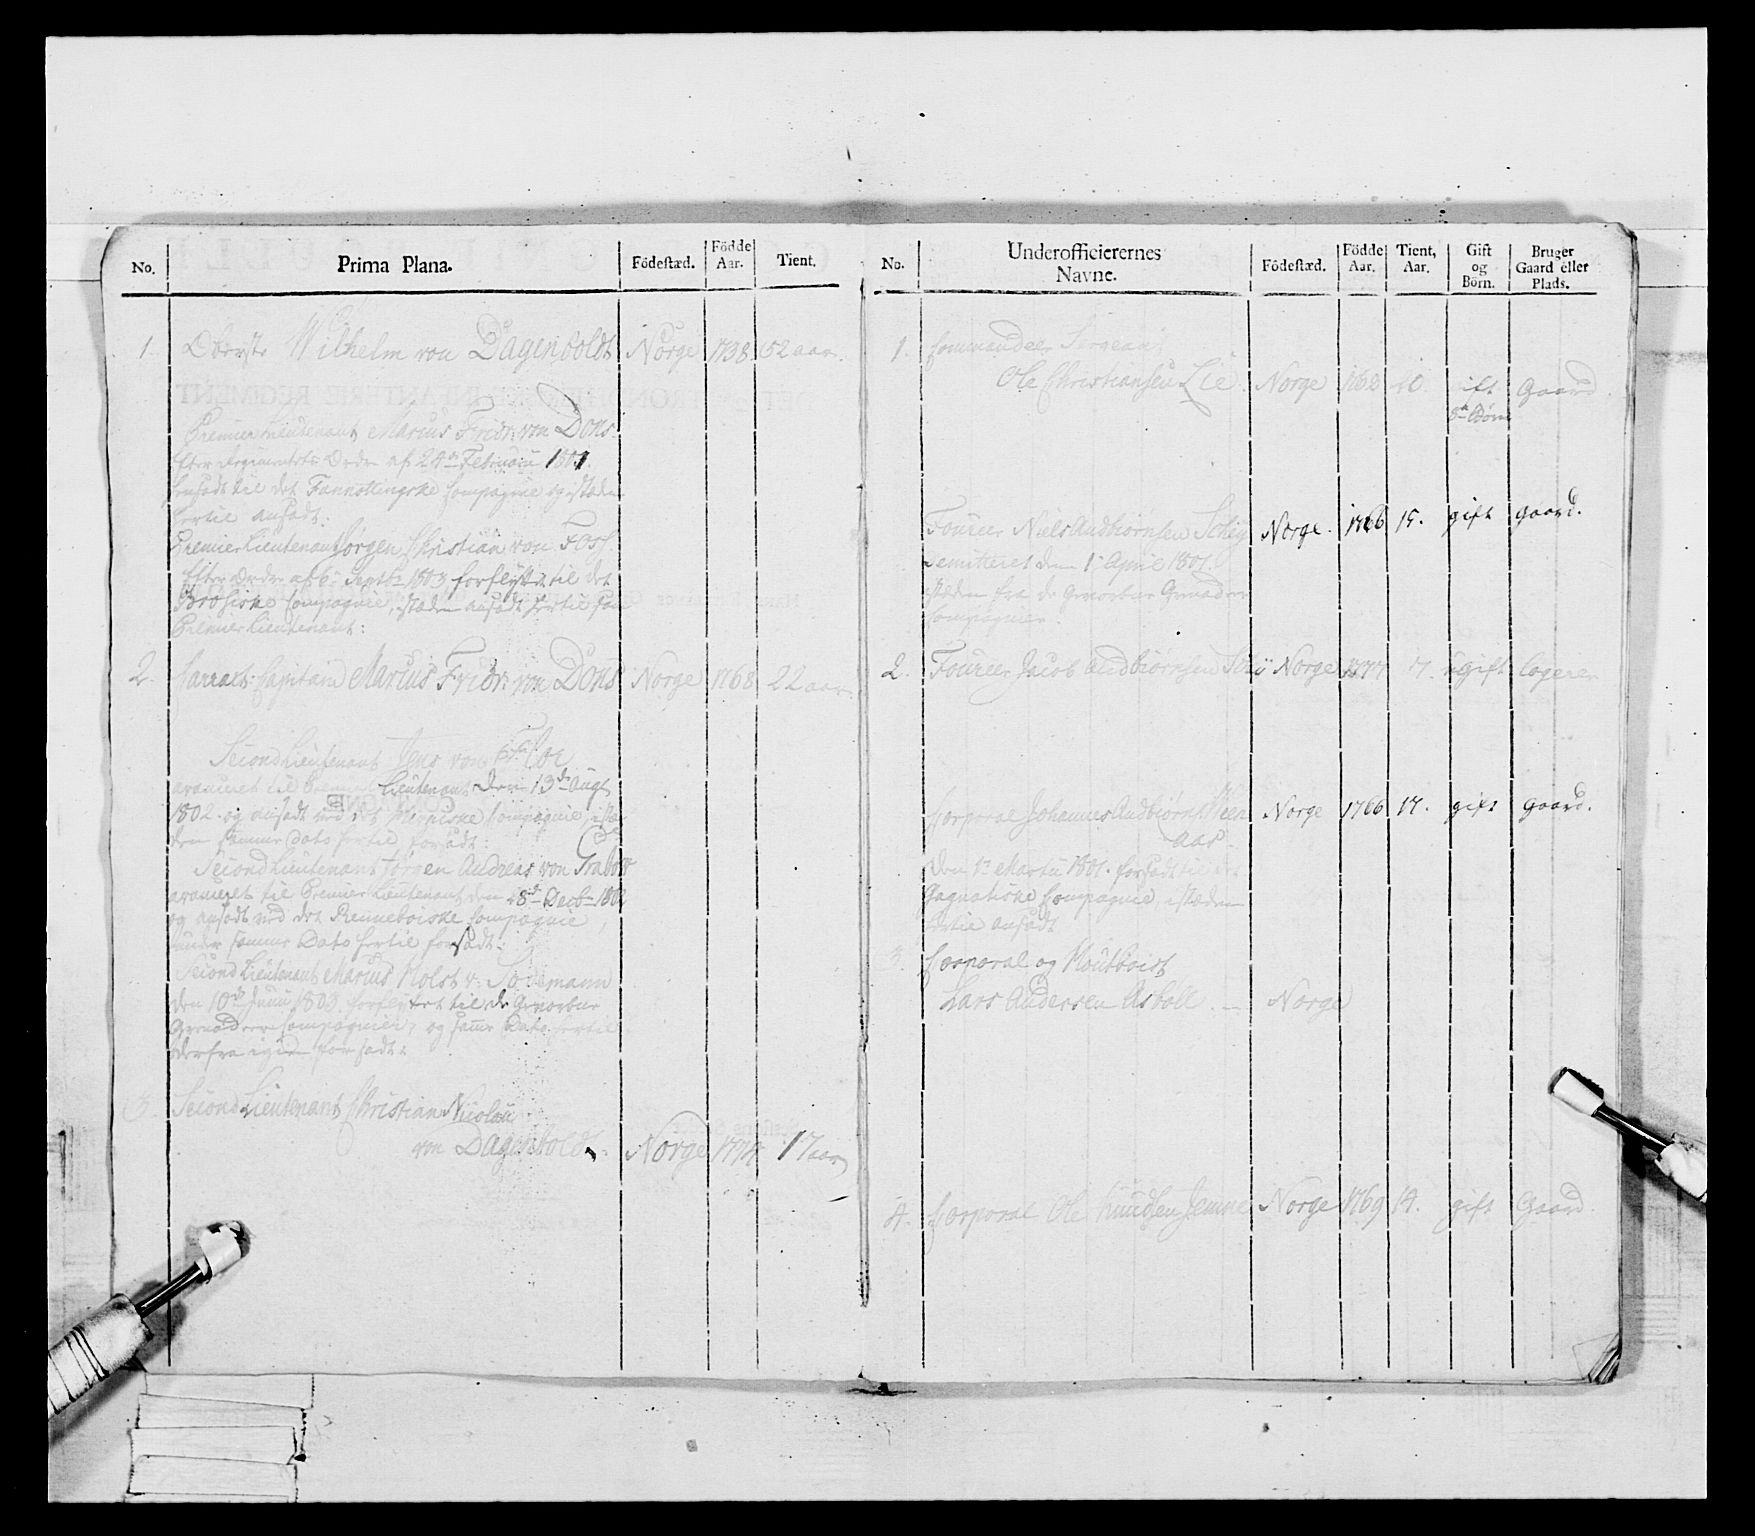 No.
Prima Plana.
Födestæd.
Födde
Aar.
Tient.
1.
Oberste Wilhelm von Dagenboldt
Norge
1738
52 aar.
Premier Lieutenant Marius Fridr: von Dons
efter Regimentets Ordre af 24de Februarii 1801.
forsadt til det Compagnie og istæden
hertil ansadt.
Premier Lieutenant Jørgen Christian von Foss
Efter Ordre af 6te Septbr 1803 forflyttet til det
Compagnie, istæden ansadt hertil som
Premier Lieutenant:
2.
Capitain Marius Fridr: von Dons
Norge
1768
22 aar.
Second Lieutenant Jens von
avanceret til Premier Lieutenant den 13de Augt
1802. og ansadt ved det Compagnie, istæ-
den samme Dato hertil forsadt:
Second Lieutenant Jørgen Andreas von Grabow
avanceret til Premier Lieutenant den 28de Decbr 1802
og ansadt ved det Renneboiske Compagnie,
under samme Dato hertil forsadt:
Second Lieutenant Marius Holst v:
den 10de Junii 1803 forflyttet til de Gevorbne
Grenadeer Compagnier, og samme Dato hertil
derfra igien forsadt:
3.
Second Lieutenant Christian Nicolai
von Dagenboldt.
Norge
1774
17 aar
No.
Underofficierernes
Navne.
Födestæd.
Födde
Aar.
Tient,
Aar.
Gift
og
Börn.
Bruger
Gaard eller
Plads.
1.
Commandeer Sergeant
Ole Christiansen Lie.
Norge
1768
gift
Børn
Gaard
Foureer Niels Audbiørnsen
Norge.
1766
15.
gift
Gaard.
Demitteret den 1te April 1801.
istæden fra de Gevorbne Grenadeer
Compagnier.
2.
Foureer Jacob Audbiørnsen
Norge
1777
7.
ugift
logerer
Corporal Johannes Audbiørns:
Norge
1766
17.
gift
Gaard.
den 1te Martii 1801. forsadt til det
Compagnie, istæden
hertil ansadt
3.
Corporal og Houtboist
Lars Andersen Asboll
Norge
4.
Corporal Ole Knudsen Jemne
Norge
1769
14.
gift
Gaard